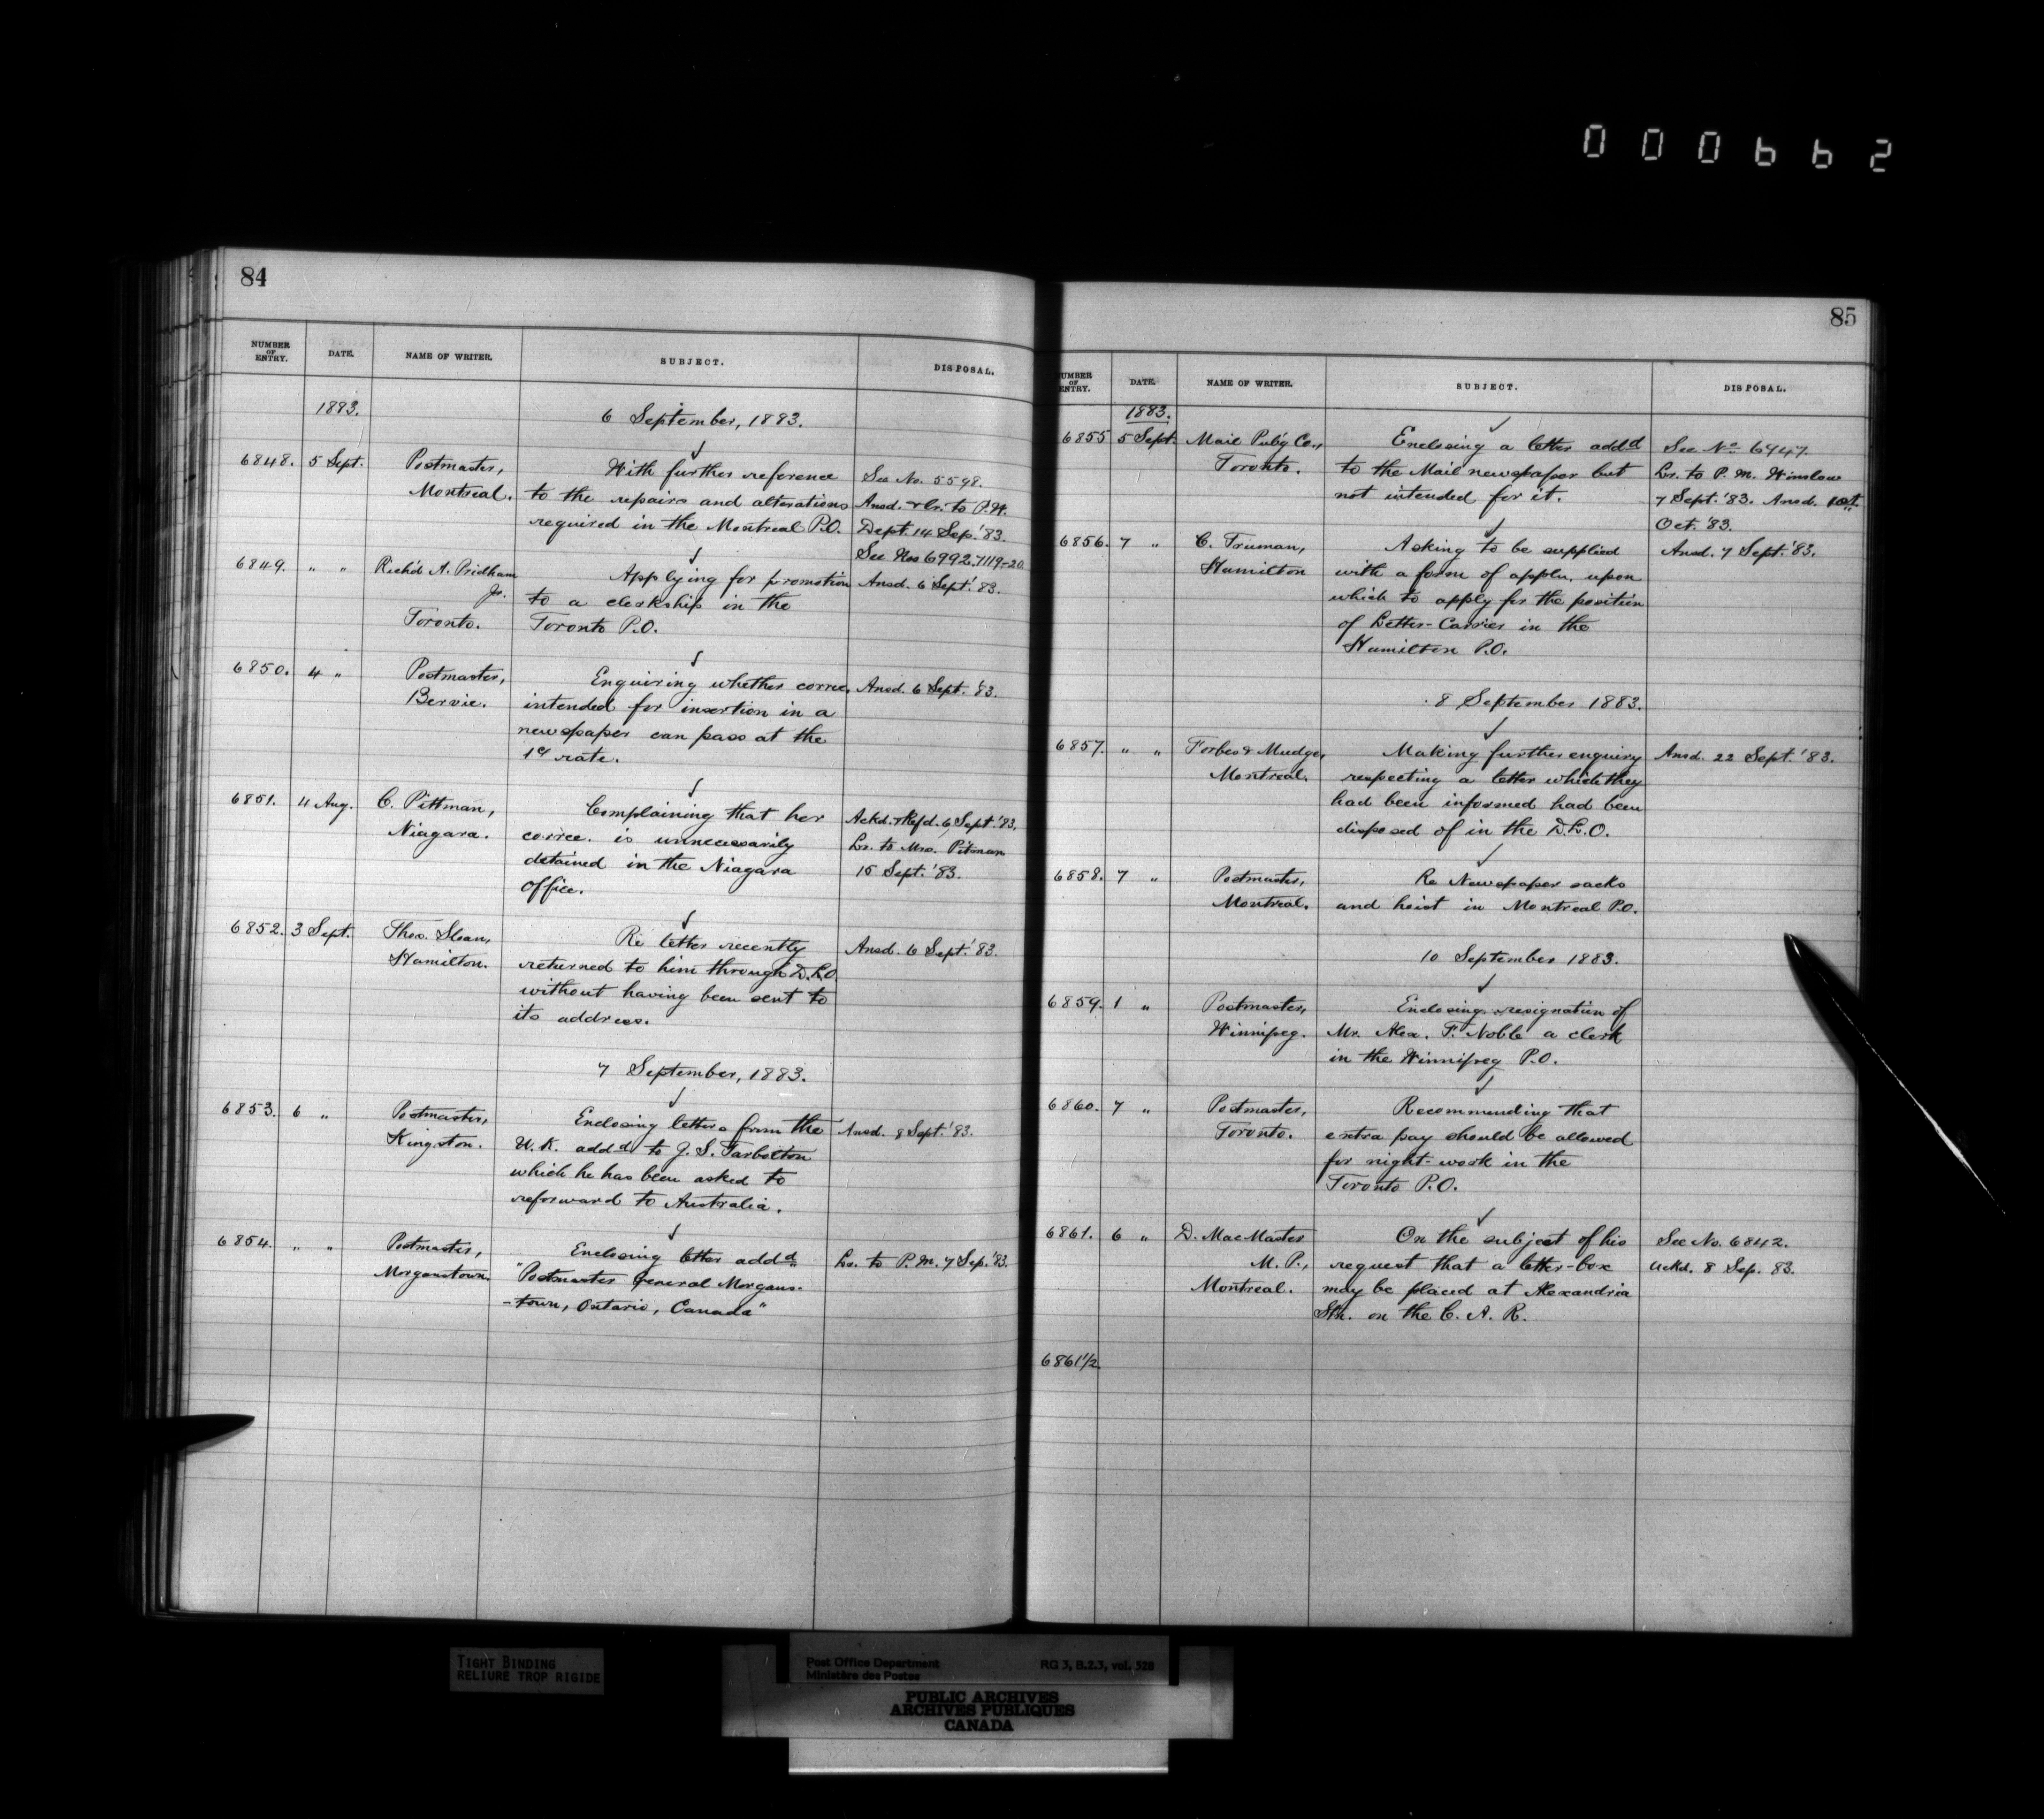 000662
84
NUMBER OF ENTRY. DATE. NAME OF WRITER. SUBJECT. DISPOSAL.
1883. 6 September, 1883.
6848. 5 Sept. Postmaster, With further reference See No. 5598.
Montreal. to the repairs and alterations Ansd. & lr. to P.W.
required in the Montreal P.O. Dept. 14 Sep. '83.
See Nos 6992. 7119-20
6849. " " Richd A. Pridham Applying for promotion Ansd. 6 Sept. '83.
Jr. to a clerkship in the
Toronto. Toronto P.O.
6850. 4 " Postmaster, Enquiring whether corrce. Ansd. 6 Sept. '83.
Bervie. intended for insertion in a
newspaper can pass at the
1c rate.
6851. 4 Aug. C. Pittman, Complaining that her Ackd. & Refd. 6 Sept. '83.
Niagara. corrce. is unnecessarily Lr. to Mrs. Pitman
detained in the Niagara 15 Sept. '83.
office.
6852. 3 Sept. Thos. Sloan, Re letter recently Ansd. 6 Sept. '83.
Hamilton. returned to him through D.L.O.
without having been sent to
its address.
7 September, 1883.
6853. 6 " Postmaster, Enclosing letters from the Ansd. 8 Sept. '83.
Kingston. U.K. addd to J. S. Tarbotton
which he has been asked to
reforward to Australia.
6854. " " Postmaster, Enclosing letter addd Lr. to P.M. 7 Sep. '83.
Morganstown. "Postmaster General Morgans-
-town, Ontario, Canada"
85
NUMBER OF ENTRY. DATE. NAME OF WRITER. SUBJECT. DISPOSAL.
1883.
6855 5 Sept. Mail Pub'g Co., Enclosing a letter addd See No. 6947.
Toronto. to the Mail newspaper but Lr. to P. M. Winslow
not intended for it. 7 Sept. '83. Ansd. 10th
Oct. '83.
6856. 7 " C. Truman, Asking to be supplied Ansd. 7 Sept. '83.
Hamilton with a form of appln. upon
which to apply for the position
of Letter-Carrier in the
Hamilton P.O.
8 September 1883.
6857. " " Forbes & Mudge, Making further enquiry Ansd. 22 Sept. '83.
Montreal. respecting a letter which they
had been informed had been
disposed of in the D.L.O.
6858. 7 " Postmaster, Re Newspaper sacks
Montreal. and hoist in Montreal P.O.
10 September 1883.
6859. 1 " Postmaster, Enclosing resignation of
Winnipeg. Mr. Alex. F. Noble a clerk
in the Winnipeg P.O.
6860. 7 " Postmaster, Recommending that
Toronto. extra pay should be allowed
for night-work in the
Toronto P.O.
6861. 6 " D. MacMaster On the subject of his See No. 6842.
M.P., request that a letter-box Ackd. 8 Sep. 83.
Montreal. may be placed at Alexandria
Stn. on the C. A. R.
6861 1/2.
TIGHT BINDING
RELIURE TROP RIGIDE
Post Office Department RG 3, B.2.3, vol. 528
Ministère des Postes
PUBLIC ARCHIVES
ARCHIVES PUBLIQUES
CANADA